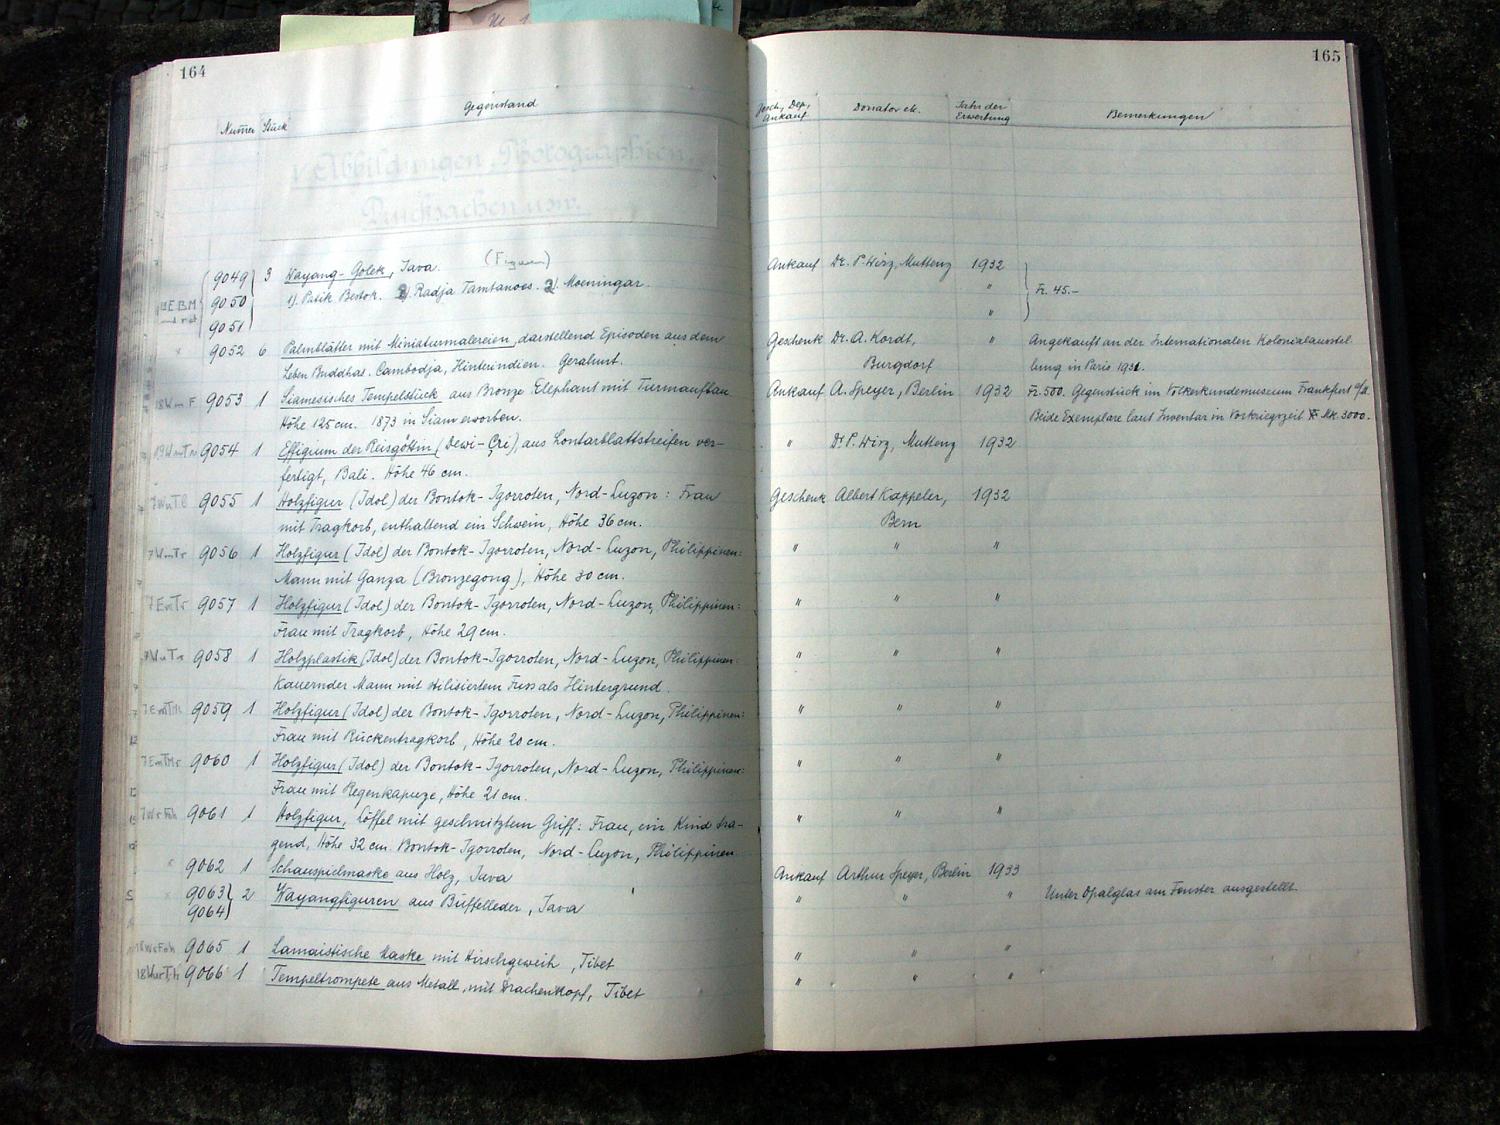 164
Nummer Stück Gegenstand
Abbildungen, Photographien,
Drucksachen usw.
9049 3 Wayang-Golek, Java. (Figuren)
9050 1). Patik Bestok. 2) Radja Tamtanoes. 3) Moeningar.
9051
9052 6 Palmblätter mit Miniaturmalereien, darstellend Episoden aus dem
Leben Buddhas. Cambodja, Hinterindien. Gerahmt.
9053 1 Siamesisches Tempelstück aus Bronze Elephant mit Turmaufbau
Höhe 125 cm. 1873 in Siam erworben.
9054 1 Effigium der Reisgöttin (Dewi-Çri), aus Lontarblattstreifen ver-
fertigt, Bali. Höhe 46 cm.
9055 1 Holzfigur (Idol) der Bontok-Igorroten, Nord-Luzon: Frau
mit Tragkorb, enthaltend ein Schwein, Höhe 36 cm.
9056 1 Holzfigur (Idol) der Bontok-Igorroten, Nord-Luzon, Philippinen:
Mann mit Ganza (Bronzegong), Höhe 30 cm.
9057 1 Holzfigur (Idol) der Bontok-Igorroten, Nord-Luzon, Philippinen:
Frau mit Tragkorb, Höhe 29 cm.
9058 1 Holzplastik (Idol) der Bontok-Igorroten, Nord-Luzon, Philippinen:
Kauernder Mann mit stilisiertem Fuss als Hintergrund.
9059 1 Holzfigur (Idol) der Bontok-Igorroten, Nord-Luzon, Philippinen:
Frau mit Rückentragkorb, Höhe 20 cm.
9060 1 Holzfigur (Idol) der Bontok-Igorroten, Nord-Luzon, Philippinen:
Frau mit Regenkapuze, Höhe 21 cm.
9061 1 Holzfigur, Löffel mit geschnitztem Griff: Frau, ein Kind tra-
gend, Höhe 32 cm. Bontok-Igorroten, Nord-Luzon, Philippinen
9062 1 Schauspielmaske aus Holz, Java
9063 2 Wayangfiguren aus Büffelleder, Java
9064
9065 1 Lamaistische Maske mit Hirschgeweih, Tibet
9066 1 Tempeltrompete aus Metall, mit Drachenkopf, Tibet
165
Gesch, Dep, Donator etc. Jahr der Bemerkungen
Ankauf Erwerbung
Ankauf Dr. P. Wirz, Muttenz 1932
" Fr. 45.-
"
Geschenk Dr. A. Kordt, " Angekauft an der Internationalen Kolonialausstel
Burgdorf lung in Paris 1931.
Ankauf A. Speyer, Berlin 1932 Fr. 500. Gegenstück im Völkerkundemuseum Frankfurt a/M.
Beide Exemplare laut Inventar in Vorkriegszeit Mk. 3000.
" Dr P. Wirz, Muttenz 1932
Geschenk Albert Kappeler, 1932
Bern
" " "
" " "
" " "
" " "
" " "
" " "
Ankauf Arthur Speyer, Berlin 1933
" " " Unter Opalglas am Fenster ausgestellt
" " "
" " "